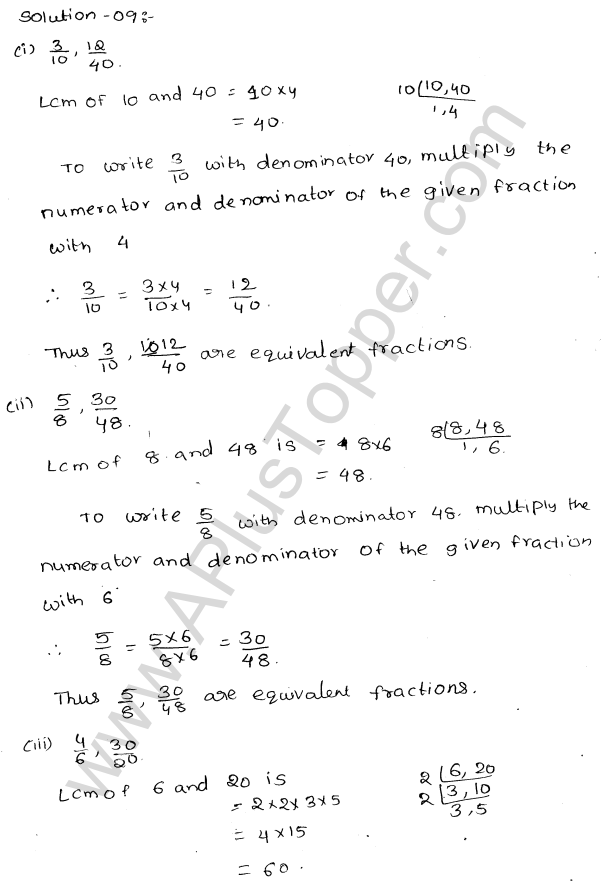 Solution -09:-
(i) 3/10, 12/40.
Lcm of 10 and 40 = 10×4    10 | 10, 40
= 40.    1, 4
To write 3/10 with denominator 40, multiply the
numerator and denominator of the given fraction
with 4
∴ 3/10 = 3×4/10×4 = 12/40.
Thus 3/10, 12/40 are equivalent fractions.
(ii) 5/8, 30/48.
Lcm of 8 and 48 is = 8×6    8 | 8, 48
= 48.    1, 6.
To write 5/8 with denominator 48. multiply the
numerator and denominator of the given fraction
with 6
∴ 5/8 = 5×6/8×6 = 30/48.
Thus 5/8, 30/48 are equivalent fractions.
(iii) 4/6, 30/20.
Lcm of 6 and 20 is    2 | 6, 20
= 2×2×3×5    2 | 3, 10
= 4×15    3, 5
= 60.
www.APlusTopper.com